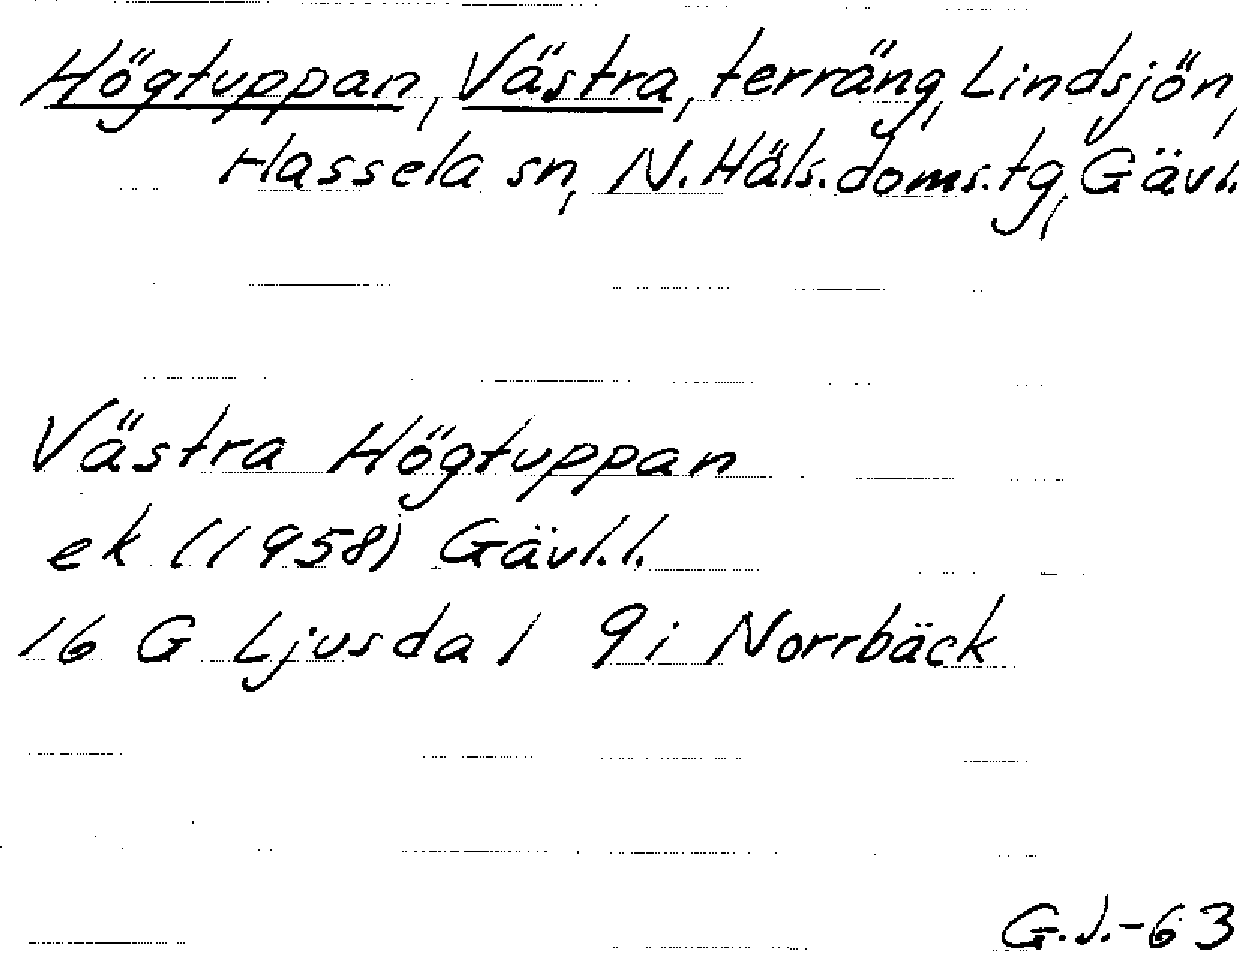 Högtuppan, Västra, terräng, Lindsjön,
Hassela sn, N. Häls. doms. tg, Gävl.
Västra Högtuppan
ek (1958) Gävl.l.
16 G Ljusdal 9i Norrbäck
G.J.-63